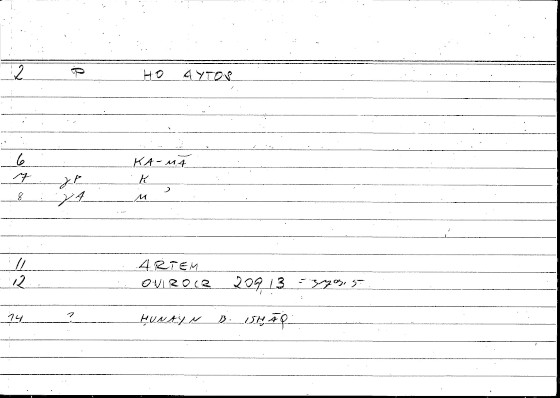 2 P HO AYTOS
6 KA-MĀ
7 γP K
8 γA M
11 ARTEM
12 209,13 =
14 ? ḤUNAYN B. ISḤĀQ